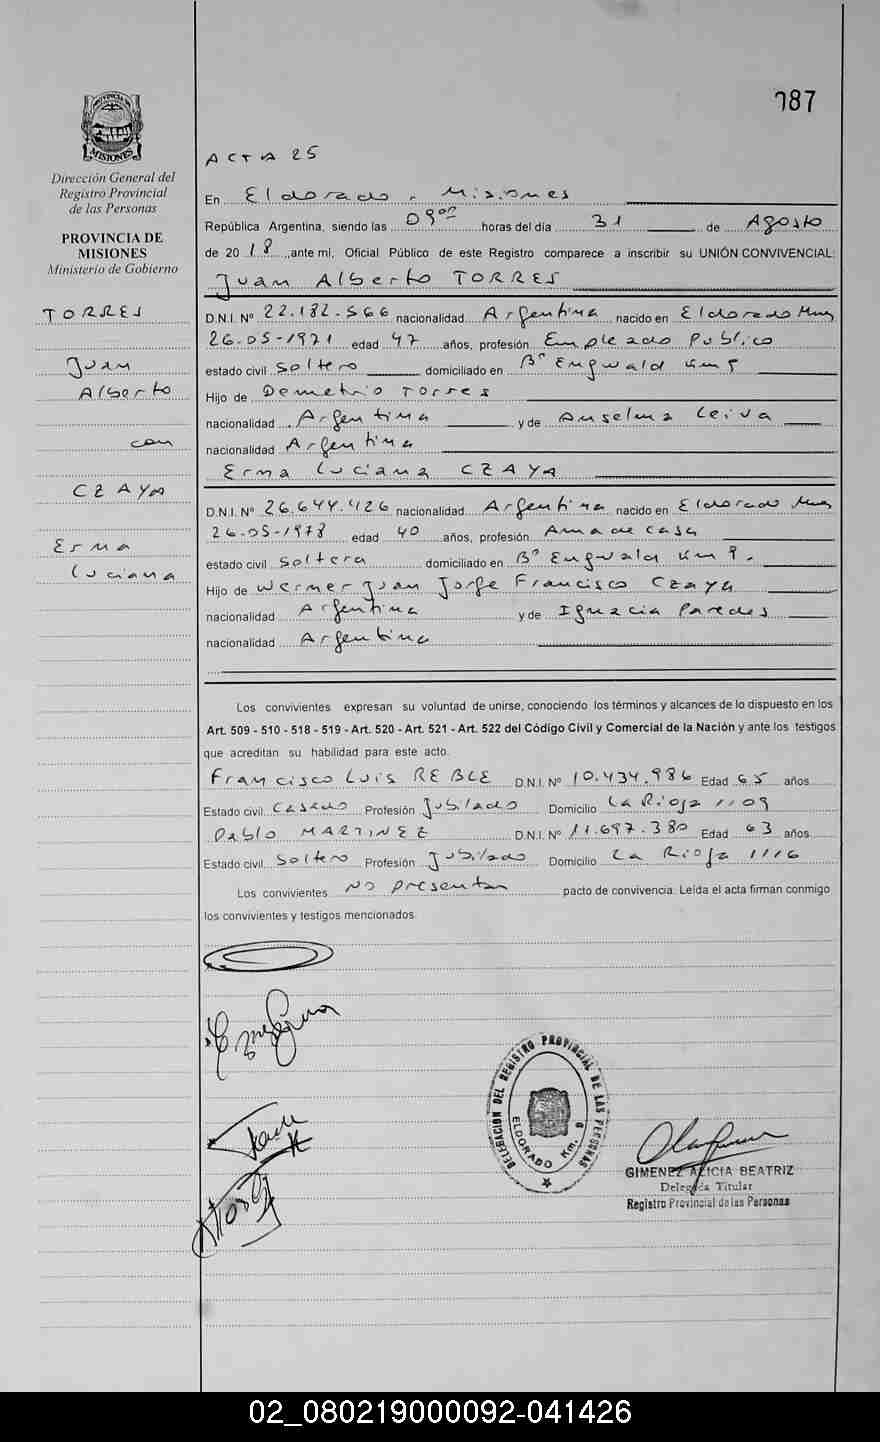 087
PROVINCIA DE
MISIONES
Dirección General del
Registro Provincial
de las Personas
PROVINCIA DE
MISIONES
Ministerio de Gobierno
TORRES
Juan
Alberto
con
CZAYA
Erma
Luciana
ACTA 25
En Eldorado, Misiones
República Argentina, siendo las 09 horas del día 31 de Agosto
de 2018, ante mí, Oficial Público de este Registro comparece a inscribir su UNIÓN CONVIVENCIAL:
Juan Alberto TORRES
D.N.I. Nº 22.182.566 nacionalidad Argentina nacido en Eldorado Mnes
26-05-1971 edad 47 años, profesión Empleado Publico
estado civil Soltero domiciliado en Bº Engwald Km
Hijo de Demetrio Torres
nacionalidad Argentina y de Anselma Leiva
nacionalidad Argentina
Erma Luciana CZAYA
D.N.I. Nº 26.644.426 nacionalidad Argentina nacido en Eldorado Mnes
26-05-1978 edad 40 años, profesión Ama de casa
estado civil Soltera domiciliado en Bº Engwald Km 9.
Hijo de Werner Juan Jorge Francisco Czaya
nacionalidad Argentina y de Ignacia Paredes
nacionalidad Argentina
Los convivientes expresan su voluntad de unirse, conociendo los términos y alcances de lo dispuesto en los
Art. 509 - 510 - 518 - 519 - Art. 520 - Art. 521 - Art. 522 del Código Civil y Comercial de la Nación y ante los testigos
que acreditan su habilidad para este acto.
Francisco Luis REBLE D.N.I. Nº 10.434.986 Edad 65 años
Estado civil Casado Profesión Jubilado Domicilio La Rioja 1109
Pablo MARTINEZ D.N.I. Nº 11.697.380 Edad 63 años
Estado civil Soltero Profesión Jubilado Domicilio La Rioja 1116
Los convivientes No presentan pacto de convivencia. Leída el acta firman conmigo
los convivientes y testigos mencionados.
DELEGACION DEL REGISTRO PROVINCIAL DE LAS PERSONAS
ELDORADO Km. 9
GIMENEZ ALICIA BEATRIZ
Delegada Titular
Registro Provincial de las Personas
02_080219000092-041426